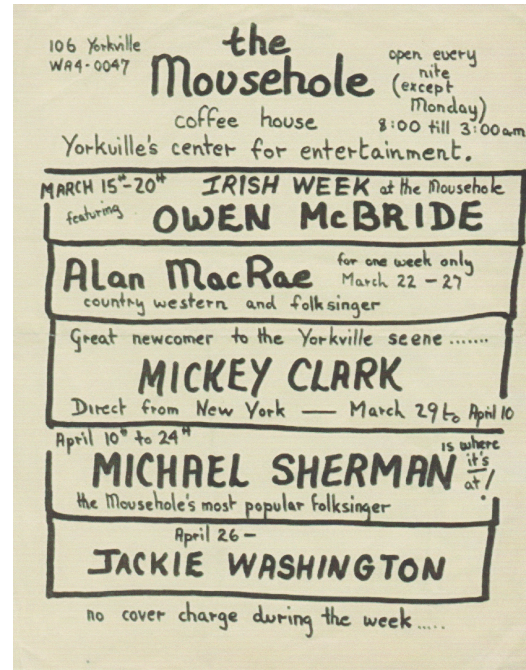 106 Yorkville
WA4-0047
the
Mousehole
open every
nite
(except
Monday)
8:00 till 3:00am
coffee house
Yorkville's center for entertainment.
MARCH 15th-20th IRISH WEEK at the Mousehole
featuring OWEN McBRIDE
Alan MacRae
for one week only
March 22 - 27
country western and folksinger
Great newcomer to the Yorkville seene .......
MICKEY CLARK
Direct from New York — March 29 to April 10
April 10th to 24th
MICHAEL SHERMAN
is where
it's
at!
the Mousehole's most popular folksinger
April 26 -
JACKIE WASHINGTON
no cover charge during the week .....